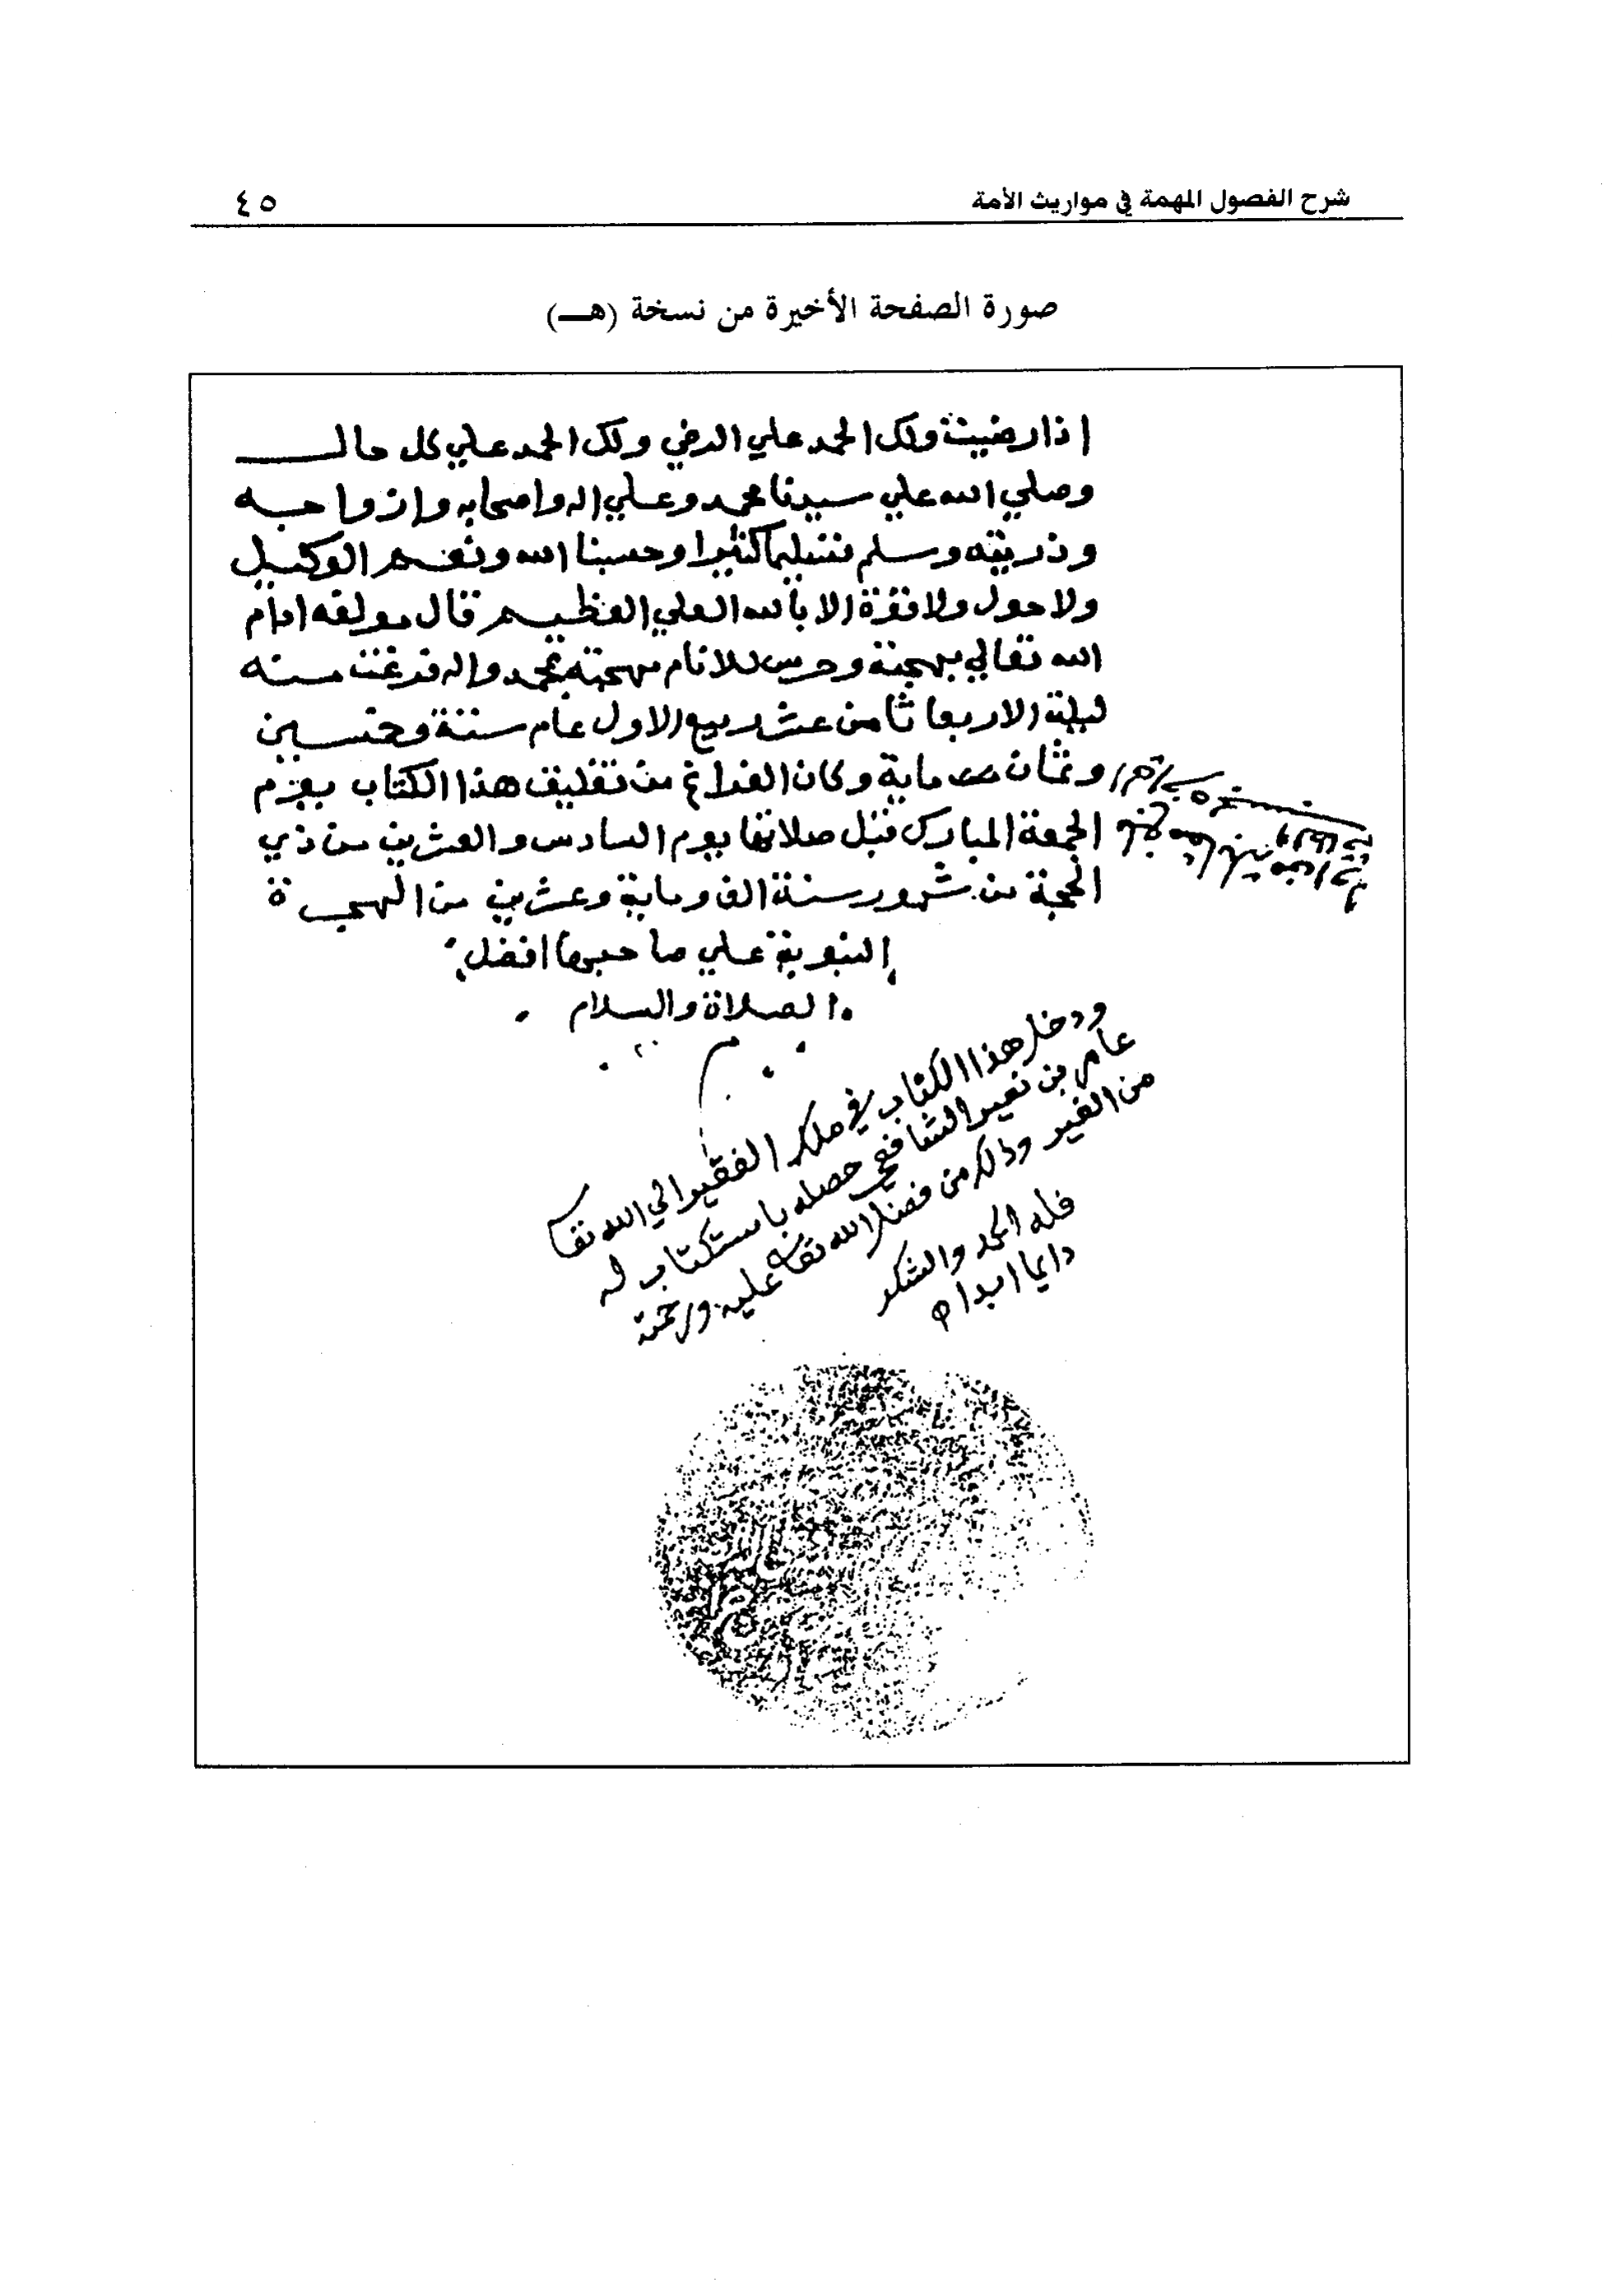 شرح الفصول المهمة في مواريث الأمة
٤٥
صورة الصفحة الأخيرة من نسخة (هـ)
اذا رضيت ولك الحمد علي الرضي ولك الحمد علي كل حال
وصلي الله علي سيدنا محمد وعلي اله واصحابه وازواجه
وذريته وسلم تسليما كثيرا وحسبنا الله ونعم الوكيل
ولا حول ولا قوة الا بالله العلي العظيم قال مولفه ادام
الله تعالي بهجته وحرس للانام مهجته بمحمد واله فرغت منه
ليلة الاربعا ثامن عشر ربيع الاول عام ستة وخمسين
وثمان ماية وكان الفراغ من تعليق هذا الكتاب يوم
الجمعة المبارك قبل صلاتها يوم السادس والعشرين من ذي
الحجة من شهور سنة الف وماية وعشرين من الهجرة
النبوية علي صاحبها افضل
الصلاة والسلام
ودخل هذا الكتاب في ملك الفقير الي الله تعا
عامر بن نعير الشافعي حصله باستكتاب له
من الغير وذلك من فضل الله تعا عليه ورحمته
فله الحمد والشكر
دايما ابدا